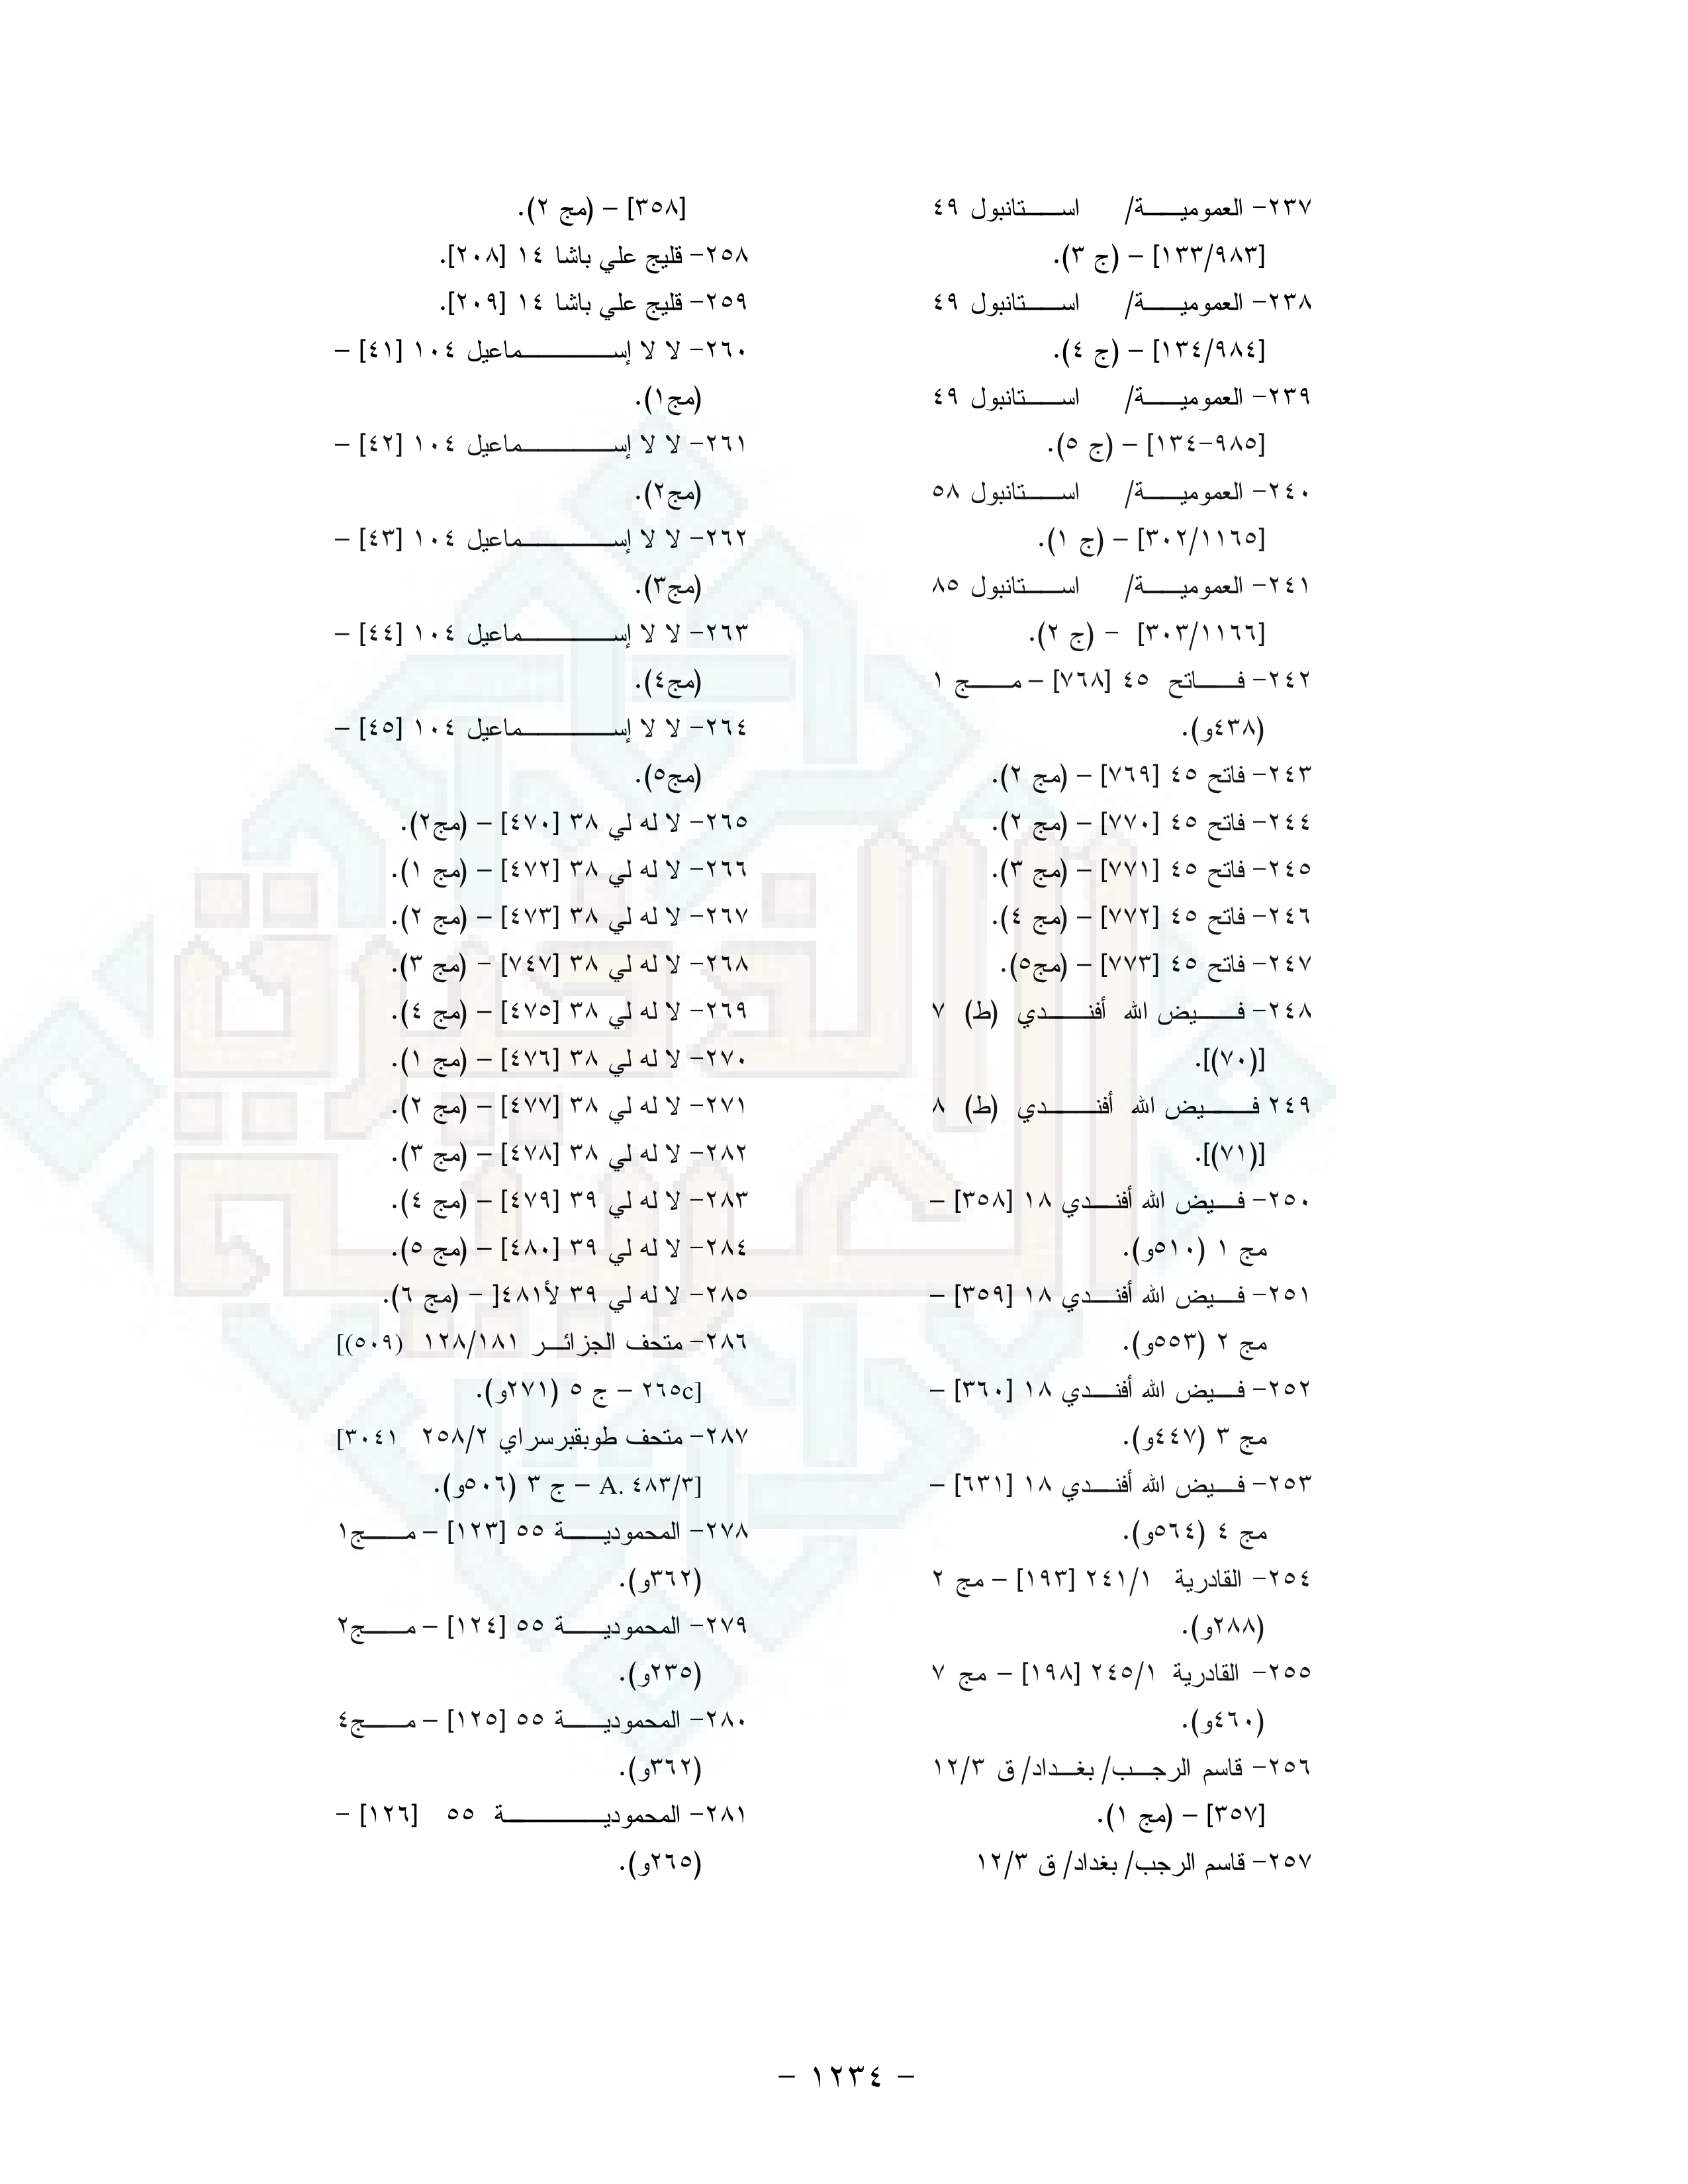 ٢٣٧- العمومية/ استانبول ٤٩
[١٣٣/٩٨٣] – (ج ٣).
٢٣٨- العمومية/ استانبول ٤٩
[١٣٤/٩٨٤] – (ج ٤).
٢٣٩- العمومية/ استانبول ٤٩
[٩٨٥-١٣٤] – (ج ٥).
٢٤٠- العمومية/ استانبول ٥٨
[٣٠٢/١١٦٥] – (ج ١).
٢٤١- العمومية/ استانبول ٨٥
[٣٠٣/١١٦٦] – (ج ٢).
٢٤٢- فاتح ٤٥ [٧٦٨] – مج ١
(٤٣٨و).
٢٤٣- فاتح ٤٥ [٧٦٩] – (مج ٢).
٢٤٤- فاتح ٤٥ [٧٧٠] – (مج ٢).
٢٤٥- فاتح ٤٥ [٧٧١] – (مج ٣).
٢٤٦- فاتح ٤٥ [٧٧٢] – (مج ٤).
٢٤٧- فاتح ٤٥ [٧٧٣] – (مج٥).
٢٤٨- فيض الله أفندي (ط) ٧
[(٧٠)].
٢٤٩ فيض الله أفندي (ط) ٨
[(٧١)].
٢٥٠- فيض الله أفندي ١٨ [٣٥٨] –
مج ١ (٥١٠و).
٢٥١- فيض الله أفندي ١٨ [٣٥٩] –
مج ٢ (٥٥٣و).
٢٥٢- فيض الله أفندي ١٨ [٣٦٠] –
مج ٣ (٤٤٧و).
٢٥٣- فيض الله أفندي ١٨ [٦٣١] –
مج ٤ (٥٦٤و).
٢٥٤- القادرية ٢٤١/١ [١٩٣] – مج ٢
(٢٨٨و).
٢٥٥- القادرية ٢٤٥/١ [١٩٨] – مج ٧
(٤٦٠و).
٢٥٦- قاسم الرجب/ بغداد/ ق ١٢/٣
[٣٥٧] – (مج ١).
٢٥٧- قاسم الرجب/ بغداد/ ق ١٢/٣
[٣٥٨] – (مج ٢).
٢٥٨- قليج علي باشا ١٤ [٢٠٨].
٢٥٩- قليج علي باشا ١٤ [٢٠٩].
٢٦٠- لا لا إسماعيل ١٠٤ [٤١] –
(مج١).
٢٦١- لا لا إسماعيل ١٠٤ [٤٢] –
(مج٢).
٢٦٢- لا لا إسماعيل ١٠٤ [٤٣] –
(مج٣).
٢٦٣- لا لا إسماعيل ١٠٤ [٤٤] –
(مج٤).
٢٦٤- لا لا إسماعيل ١٠٤ [٤٥] –
(مج٥).
٢٦٥- لا له لي ٣٨ [٤٧٠] – (مج٢).
٢٦٦- لا له لي ٣٨ [٤٧٢] – (مج ١).
٢٦٧- لا له لي ٣٨ [٤٧٣] – (مج ٢).
٢٦٨- لا له لي ٣٨ [٧٤٧] – (مج ٣).
٢٦٩- لا له لي ٣٨ [٤٧٥] – (مج ٤).
٢٧٠- لا له لي ٣٨ [٤٧٦] – (مج ١).
٢٧١- لا له لي ٣٨ [٤٧٧] – (مج ٢).
٢٨٢- لا له لي ٣٨ [٤٧٨] – (مج ٣).
٢٨٣- لا له لي ٣٩ [٤٧٩] – (مج ٤).
٢٨٤- لا له لي ٣٩ [٤٨٠] – (مج ٥).
٢٨٥- لا له لي ٣٩ لأ٤٨١[ – (مج ٦).
٢٨٦- متحف الجزائر ١٢٨/١٨١ (٥٠٩)]
[٢٦٥c – ج ٥ (٢٧١و).
٢٨٧- متحف طوبقبرسراي ٢٥٨/٢ ٣٠٤١]
[A. ٤٨٣/٣ – ج ٣ (٥٠٦و).
٢٧٨- المحمودية ٥٥ [١٢٣] – مج١
(٣٦٢و).
٢٧٩- المحمودية ٥٥ [١٢٤] – مج٢
(٢٣٥و).
٢٨٠- المحمودية ٥٥ [١٢٥] – مج٤
(٣٦٢و).
٢٨١- المحمودية ٥٥ [١٢٦] –
(٢٦٥و).
– ١٢٣٤ –